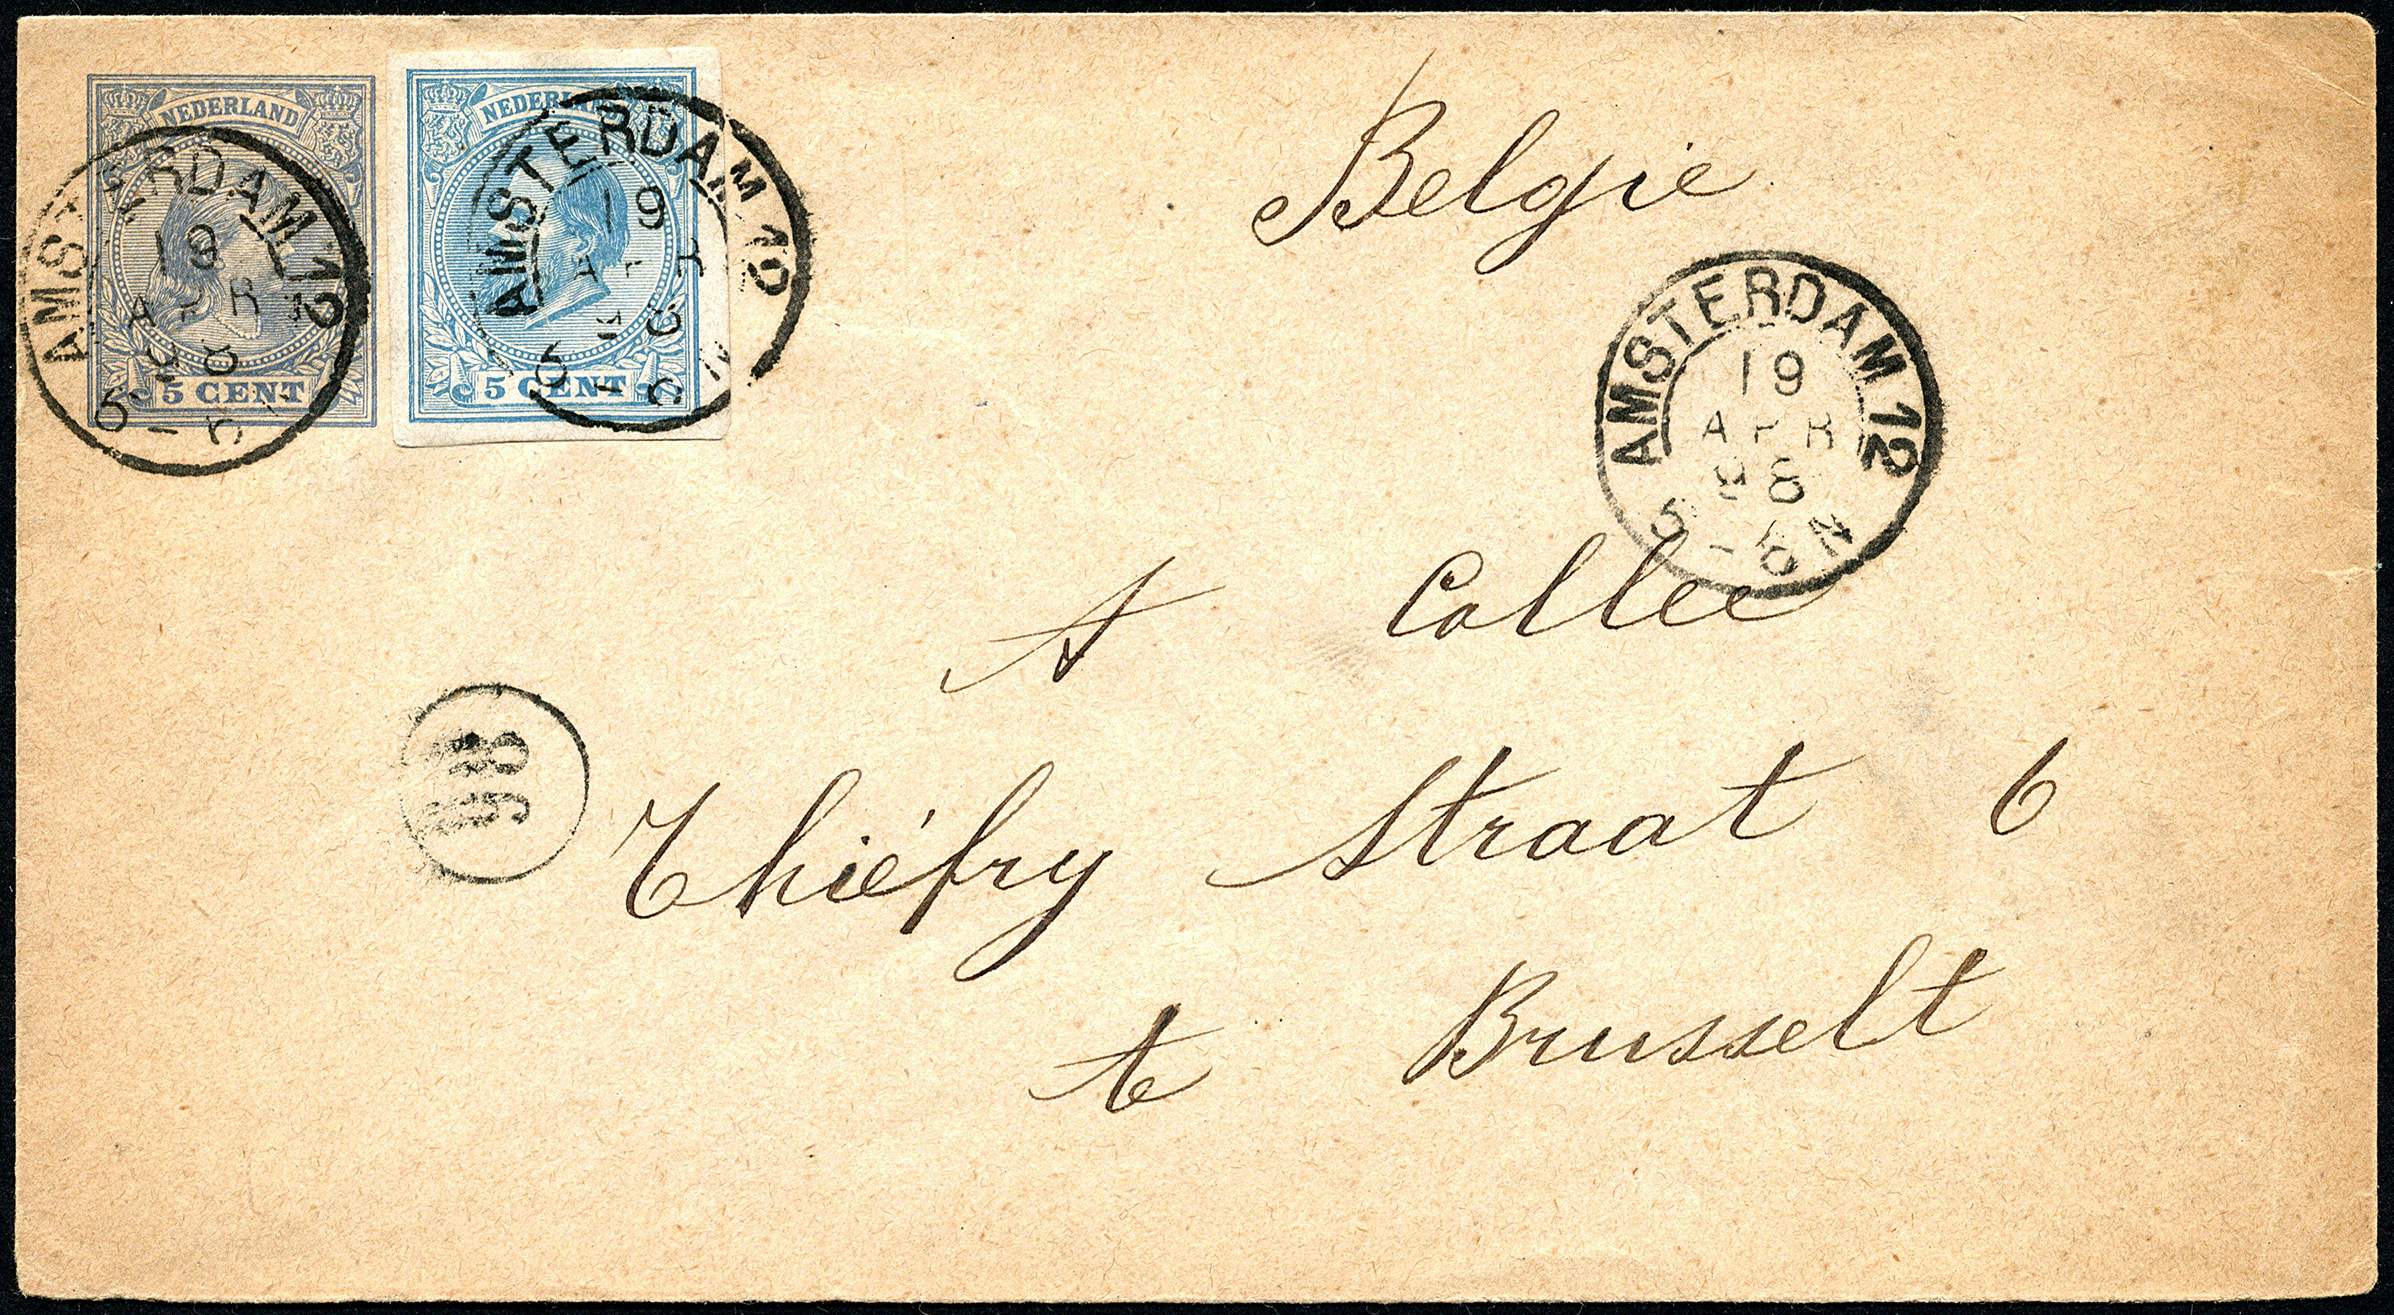 NEDERLAND
5 CENT
AMSTERDAM 12
19
APR
98
5 - 6 N
NEDERLAND
5 CENT
AMSTERDAM 12
19
APR
98
5 - 6 N
Belgie
AMSTERDAM 12
19
APR
98
5 - 6 N
A Collee
98
Thiéfry Straat 6
te Brusselt